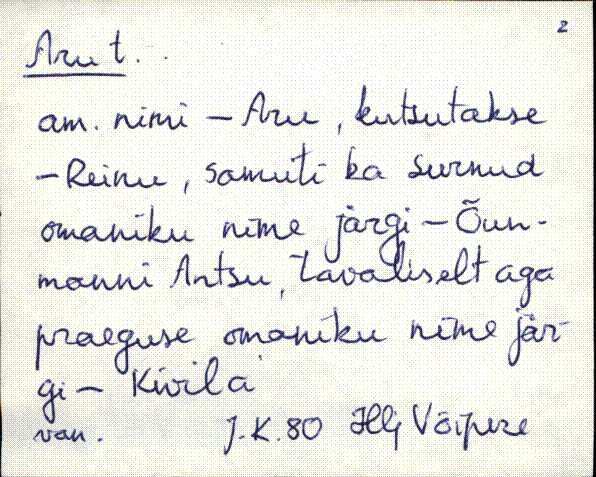 2
Aru t.
am. nimi – Aru, kutsutakse
– Reinu, samuti ka surnud
omaniku nime järgi – Õun-
manni Antsu, tavaliselt aga
praeguse omaniku nime jär-
gi – Kivila
van. J.K. 80 Hlj Võipere